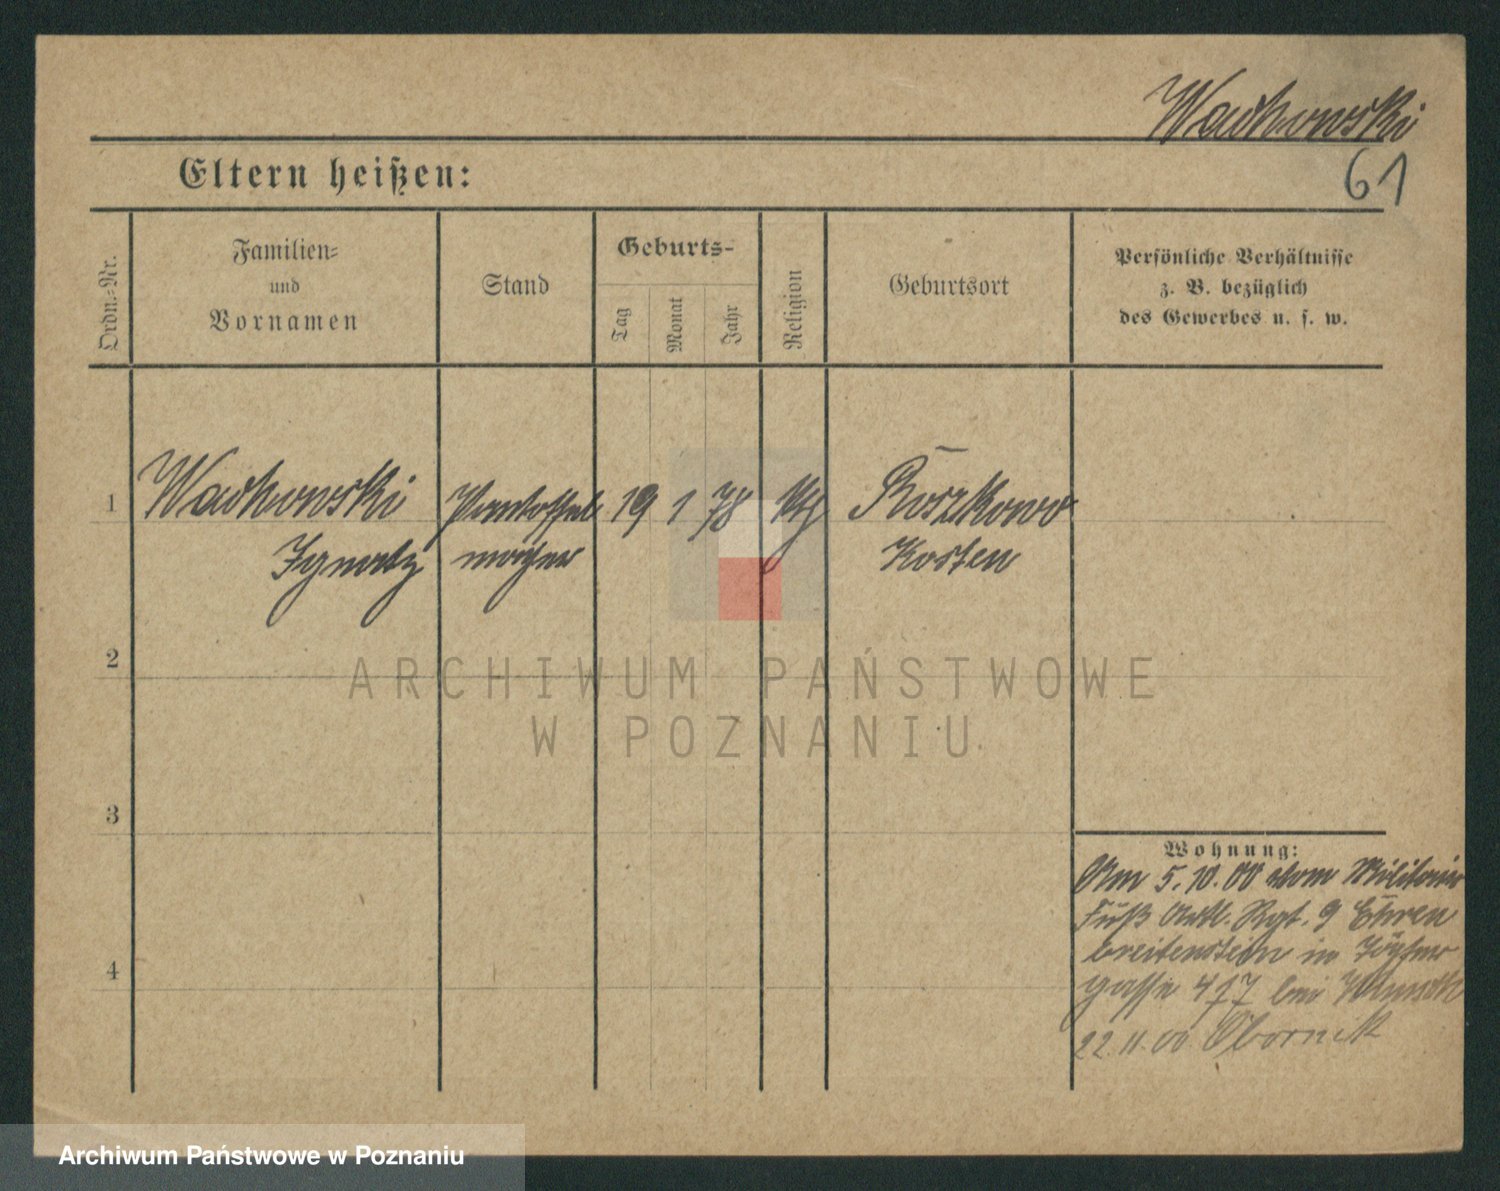 Wackowski
61
Eltern heißen:
Ordn.=Nr.
Familien=
und
Vornamen
Stand
Geburts-
Tag
Monat
Jahr
Religion
Geburtsort
Persönliche Verhältnisse
z. B. bezüglich
des Gewerbes u. s. w.
1
Wackowski
Ignatz
Pantoffel
macher
19
1
78
kth
Boszkowo
Kosten
2
3
4
Wohnung:
Am 5.10.00 vom Militair
Fuß Artl. Rgt. 9 Ehren
breitenstein in
gasse 4 17 bei
22.11.00 Obornik
ARCHIWUM PAŃSTWOWE
W POZNANIU
Archiwum Państwowe w Poznaniu